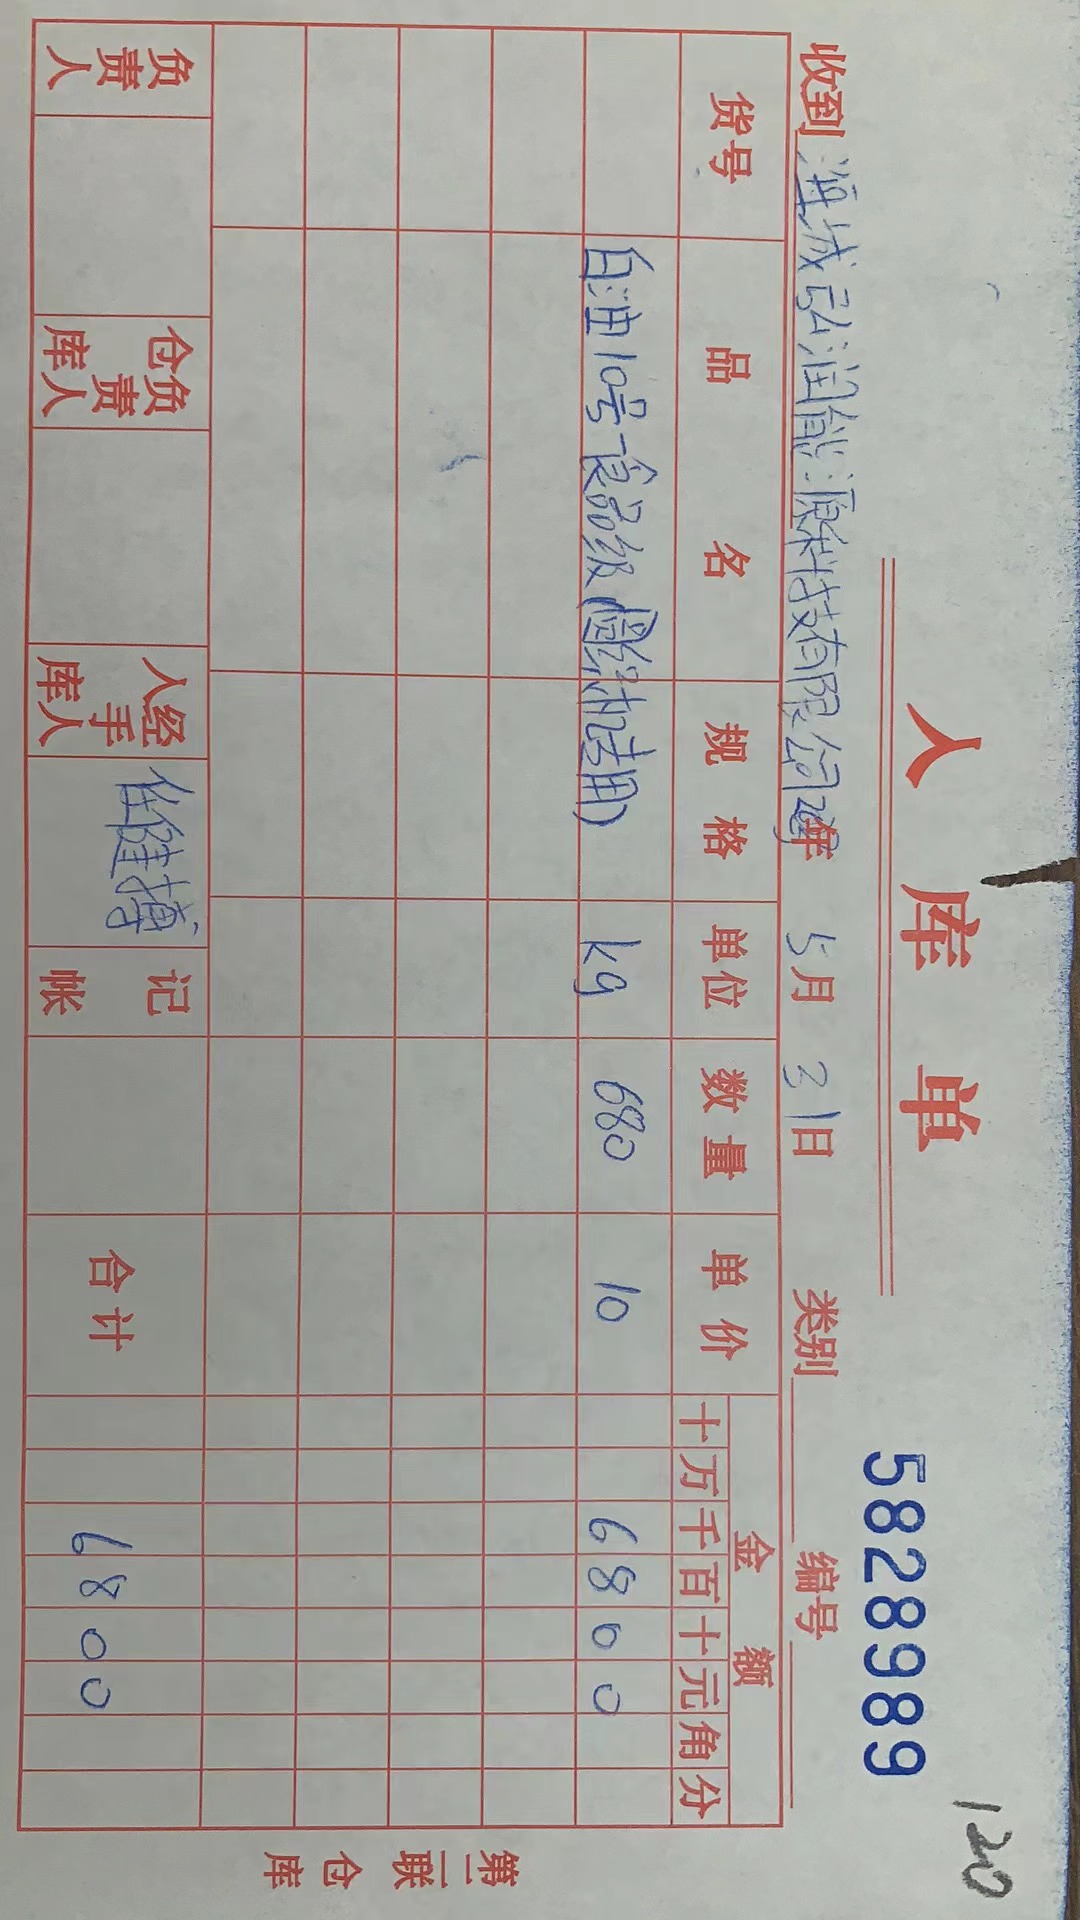 120
入库单
5828989
收到 海城弘润能源科技有限公司 年 5月31日 类别 编号
货号 品名 规格 单位 数量 单价 金额
十万千百十元角分
白油10号食品级(圆织机专用) kg 680 10 6800
合计 6800
负责人 仓库负责人 入库经手人 任健博 记帐
第二联 仓库